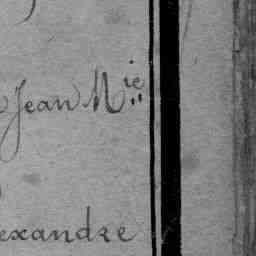 Jean M^ie
exandre